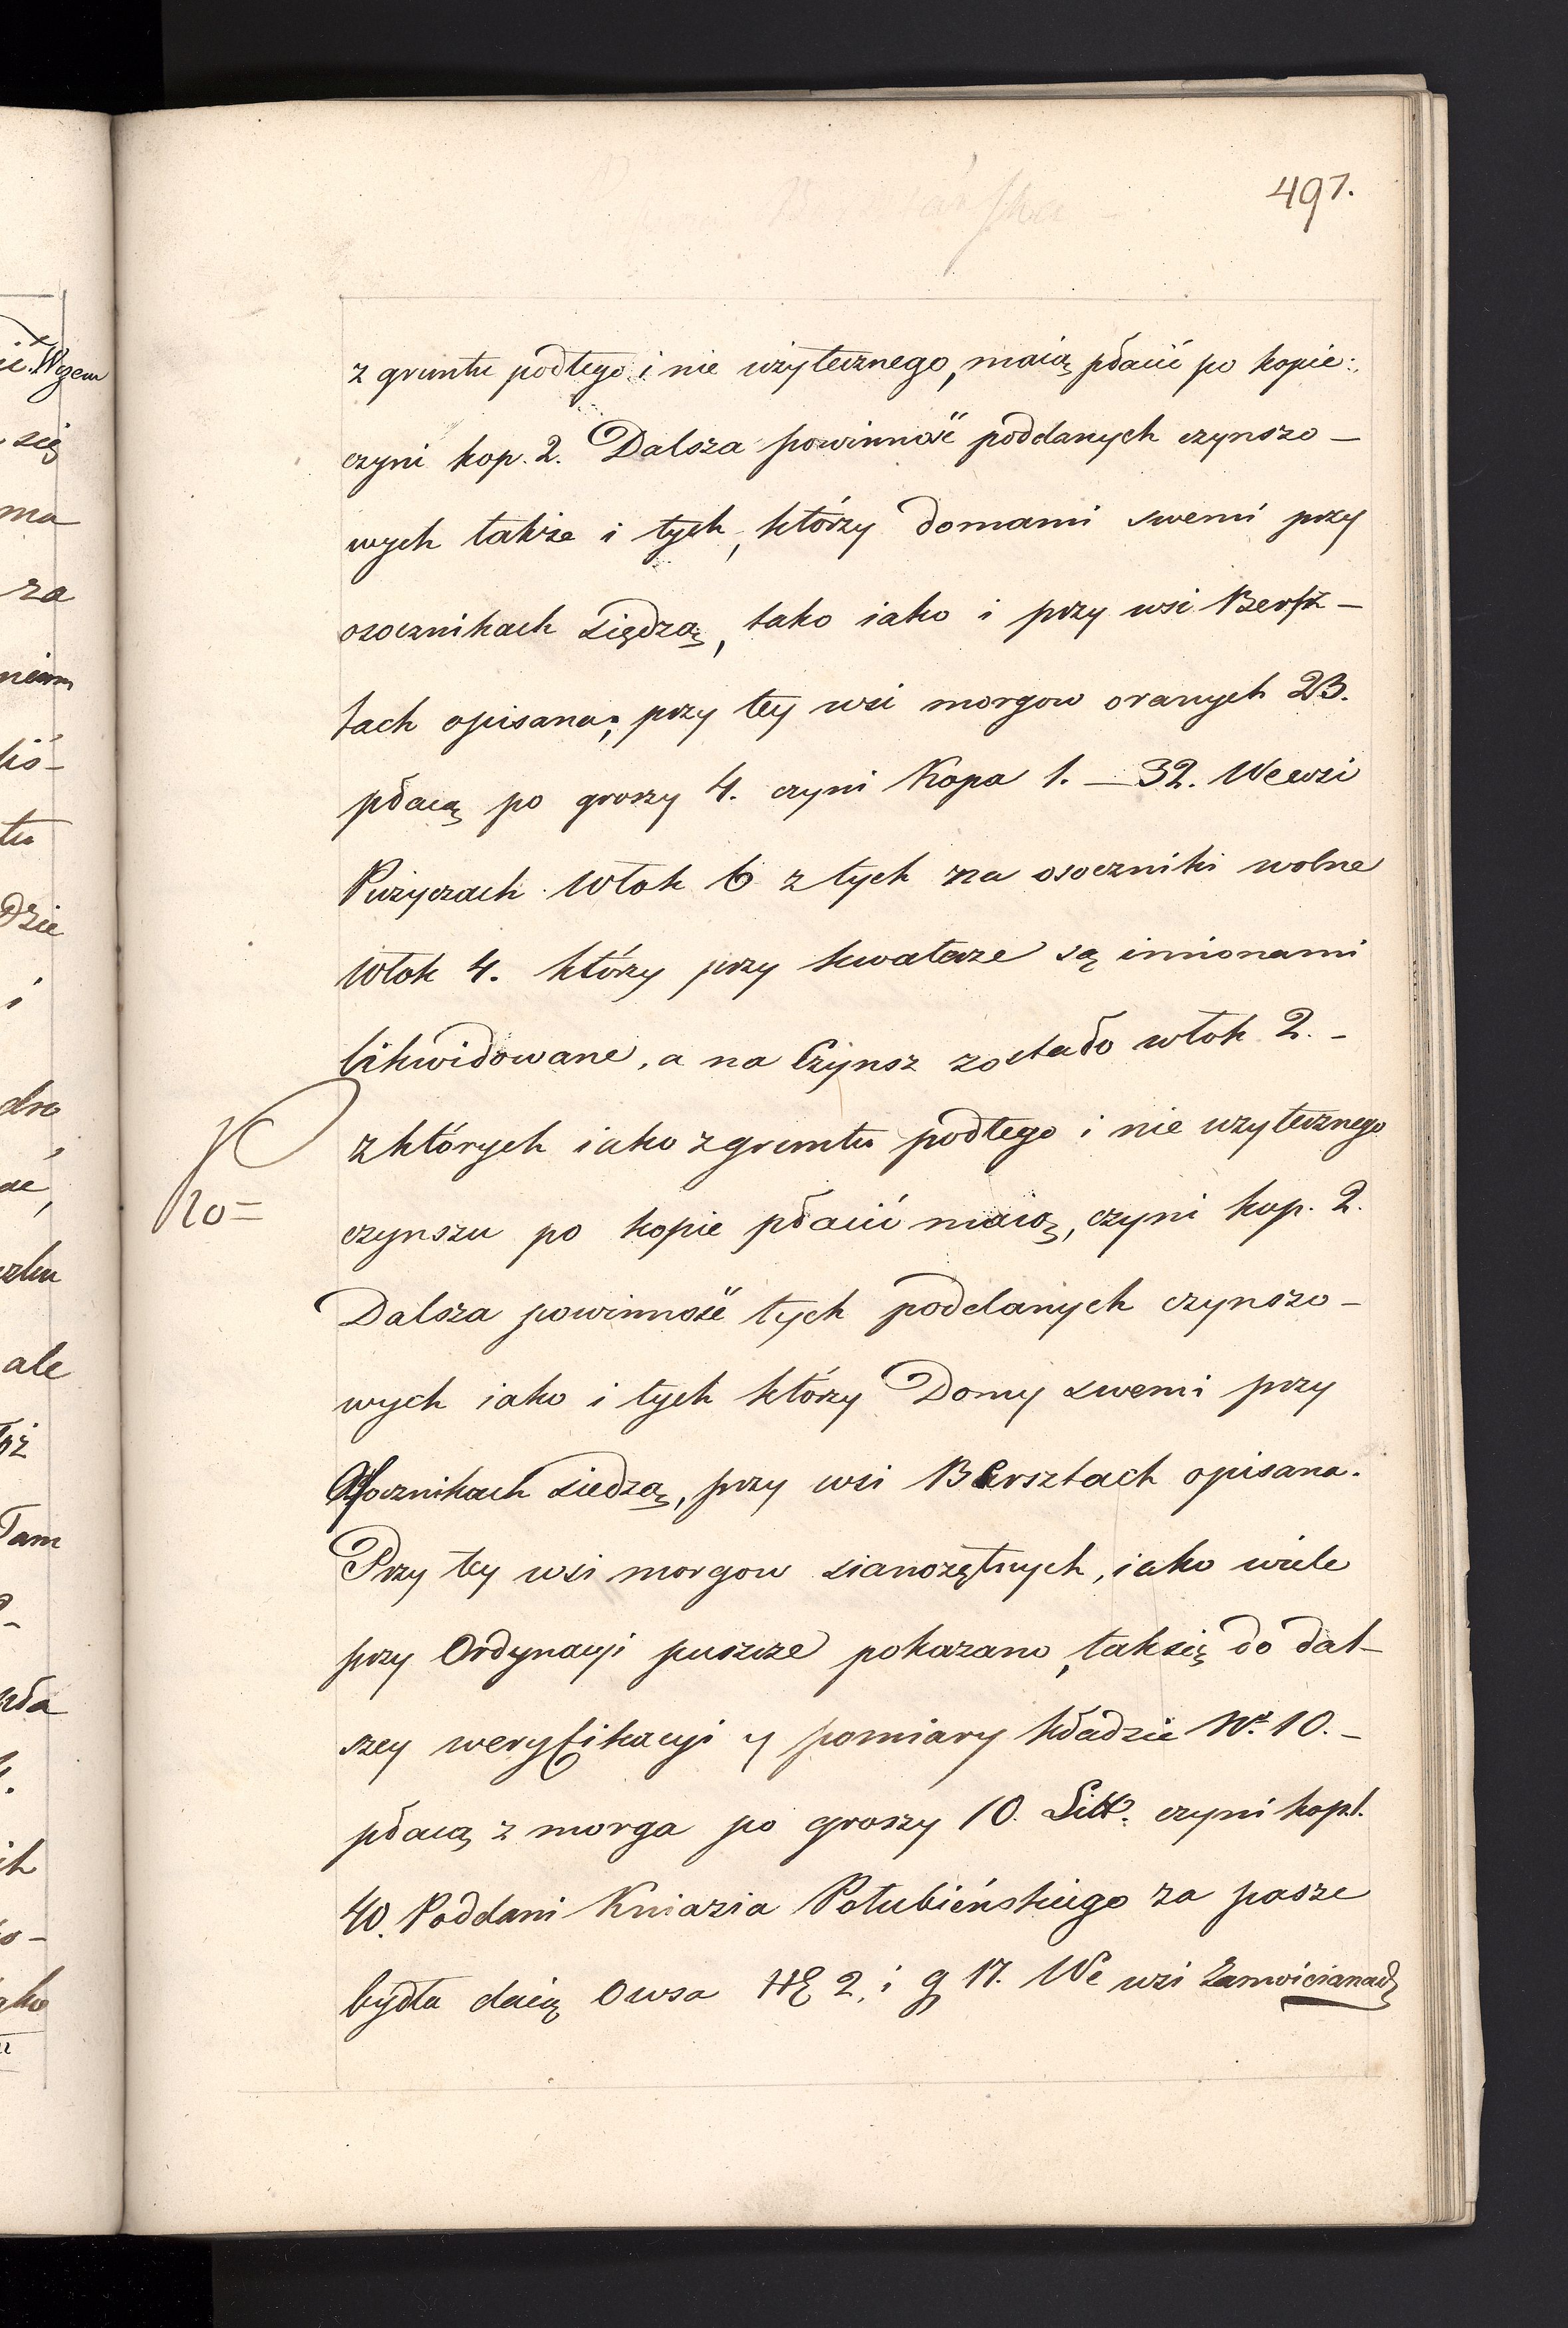 497.
z gruntu podłego i nie użytecznego, maią płacić po kopie:
czyni kop. 2. Dalsza powinność poddanych czynszo-
wych także i tych, którzy domami swemi przy
osocznikach siędzą, tako iako i przy wsi Bersz-
tach opisana; przy tey wsi morgow oranych 23.
płacą po groszy 4. czyni Kopa 1. — 32. We wsi
Puzyczach Włok 6 z tych na osoczniki wolne
Włok 4. którzy przy kwaterze są imionami
likwidowane, a na Czynsz zostało włok 2. -
z których iako z gruntu podłego i nie uzytecznego
10 =
czynszu po kopie płacić maią, czyni kop. 2.
Dalsza powinność tych poddanych czynszo-
wych iako i tych którzy Domy swemi przy
Osocznikach siedzą, przy wsi Bersztach opisana.
Przy tey wsi morgow sianożętnych, iako wiele
przy Ordynacyi puszcze pokazano, tak się do dal-
szey weryfikacyi y pomiary kładzie Nº 10. -
płacą z morga po groszy 10. Litt. czyni kop. 1.
40. Poddani Kniazia Połubińskiego za pasze
bydła daią Owsa 2, i 17. We wsi